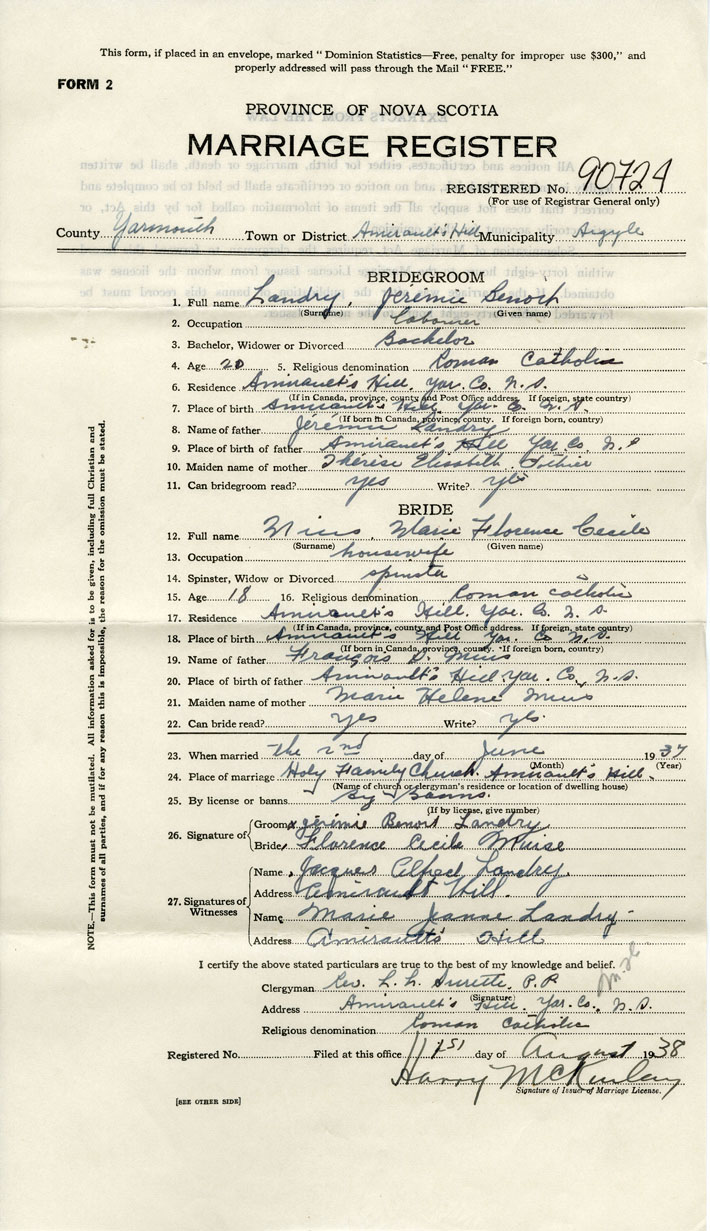 This form, if placed in an envelope, marked "Dominion Statistics—Free, penalty for improper use $300," and
properly addressed will pass through the Mail "FREE."
FORM 2
PROVINCE OF NOVA SCOTIA
MARRIAGE REGISTER
REGISTERED No. 90724
(For use of Registrar General only)
County Yarmouth Town or District Amirault's Hill Municipality Argyle
BRIDEGROOM
1. Full name Landry, Jérémie Benoit
(Surname) (Given name)
2. Occupation Labourer
3. Bachelor, Widower or Divorced Bachelor
4. Age 20 5. Religious denomination Roman Catholic
6. Residence Amirault's Hill, Yar. Co. N.S.
(If in Canada, province, county and Post Office address. If foreign, state country)
7. Place of birth Amirault's Hill, Yar. Co. N.S.
(If born in Canada, province, county. If foreign born, country)
8. Name of father Jérémie Landry
9. Place of birth of father Amirault's Hill Yar Co, N.S
10. Maiden name of mother Thérèse Elisabeth
11. Can bridegroom read? yes Write? yes
BRIDE
12. Full name Mius, Marie Florence Cecile
(Surname) (Given name)
13. Occupation housewife
14. Spinster, Widow or Divorced spinster
15. Age 18 16. Religious denomination Roman catholic
17. Residence Amirault's Hill. Yar. Co. N.S.
(If in Canada, province, county and Post Office address. If foreign, state country)
18. Place of birth Amirault's Hill Yar. Co N.S.
(If born in Canada, province, county. If foreign born, country)
19. Name of father François D. Mius
20. Place of birth of father Amirault's Hill Yar. Co, N.S
21. Maiden name of mother Marie Helene Mius
22. Can bride read? yes Write? yes
23. When married the 2nd day of June 1937
(Month) (Year)
24. Place of marriage Holy Family Church. Amirault's Hill.
(Name of church or clergyman's residence or location of dwelling house)
25. By license or banns By Banns.
(If by license, give number)
26. Signature of
Groom Jérémie Benoit Landry
Bride Florence Cecile Muise
27. Signatures of Witnesses
Name Jacques Alfred Landry
Address Amirault Hill.
Name Marie Jeanne Landry
Address Amirault's Hill
I certify the above stated particulars are true to the best of my knowledge and belief.
Clergyman Rev. L. L. Surette, P.P.
(Signature)
Address Amirault's Hill, Yar. Co., N.S.
Religious denomination Roman Catholic
Registered No. Filed at this office 1st day of August 1938
Harry McKinlay
Signature of Issuer of Marriage License.
[SEE OTHER SIDE]
NOTE.—This form must not be mutilated. All information asked for is to be given, including full Christian and
surnames of all parties, and if for any reason this is impossible, the reason for the omission must be stated.